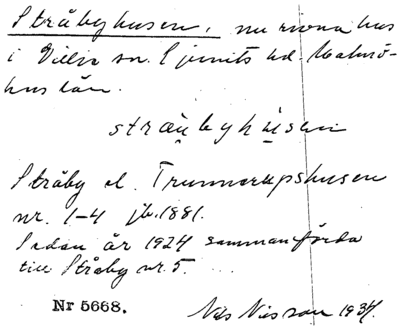 Stråbyhusen, nu rivna hus
i Villie sn. Ljunits hd. Malmö-
hus län.
stræu̯byhu̯sen
Stråby el. Trunnerupshusen
nr. 1-4 jb. 1881.
Sedan år 1924 sammanförda
till Stråby nr. 5.
Nr 5668.
Nils Nilsson 1934.